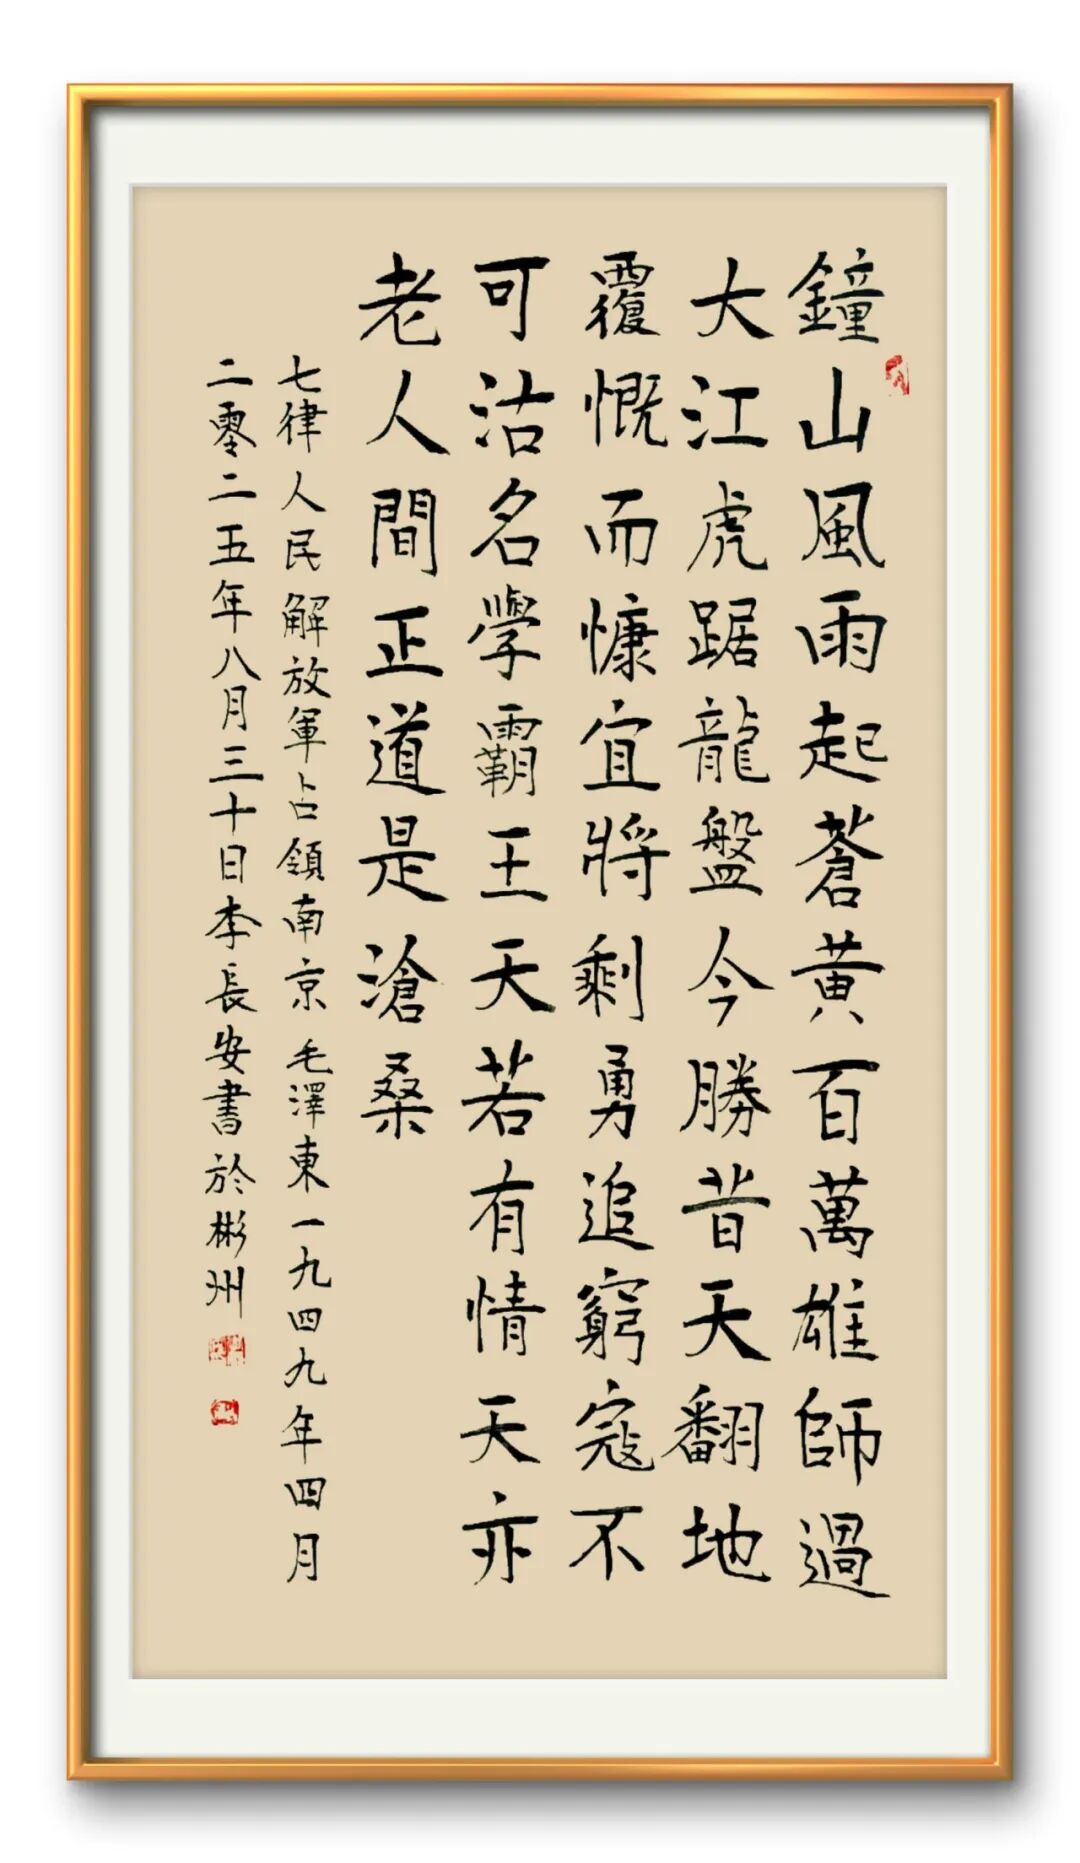 鐘山風雨起蒼黃百萬雄師過
大江虎踞龍盤今勝昔天翻地
覆慨而慷宜將剩勇追窮寇不
可沽名學霸王天若有情天亦
老人間正道是滄桑
七律人民解放軍占領南京毛澤東一九四九年四月
二零二五年八月三十日李長安書於彬州